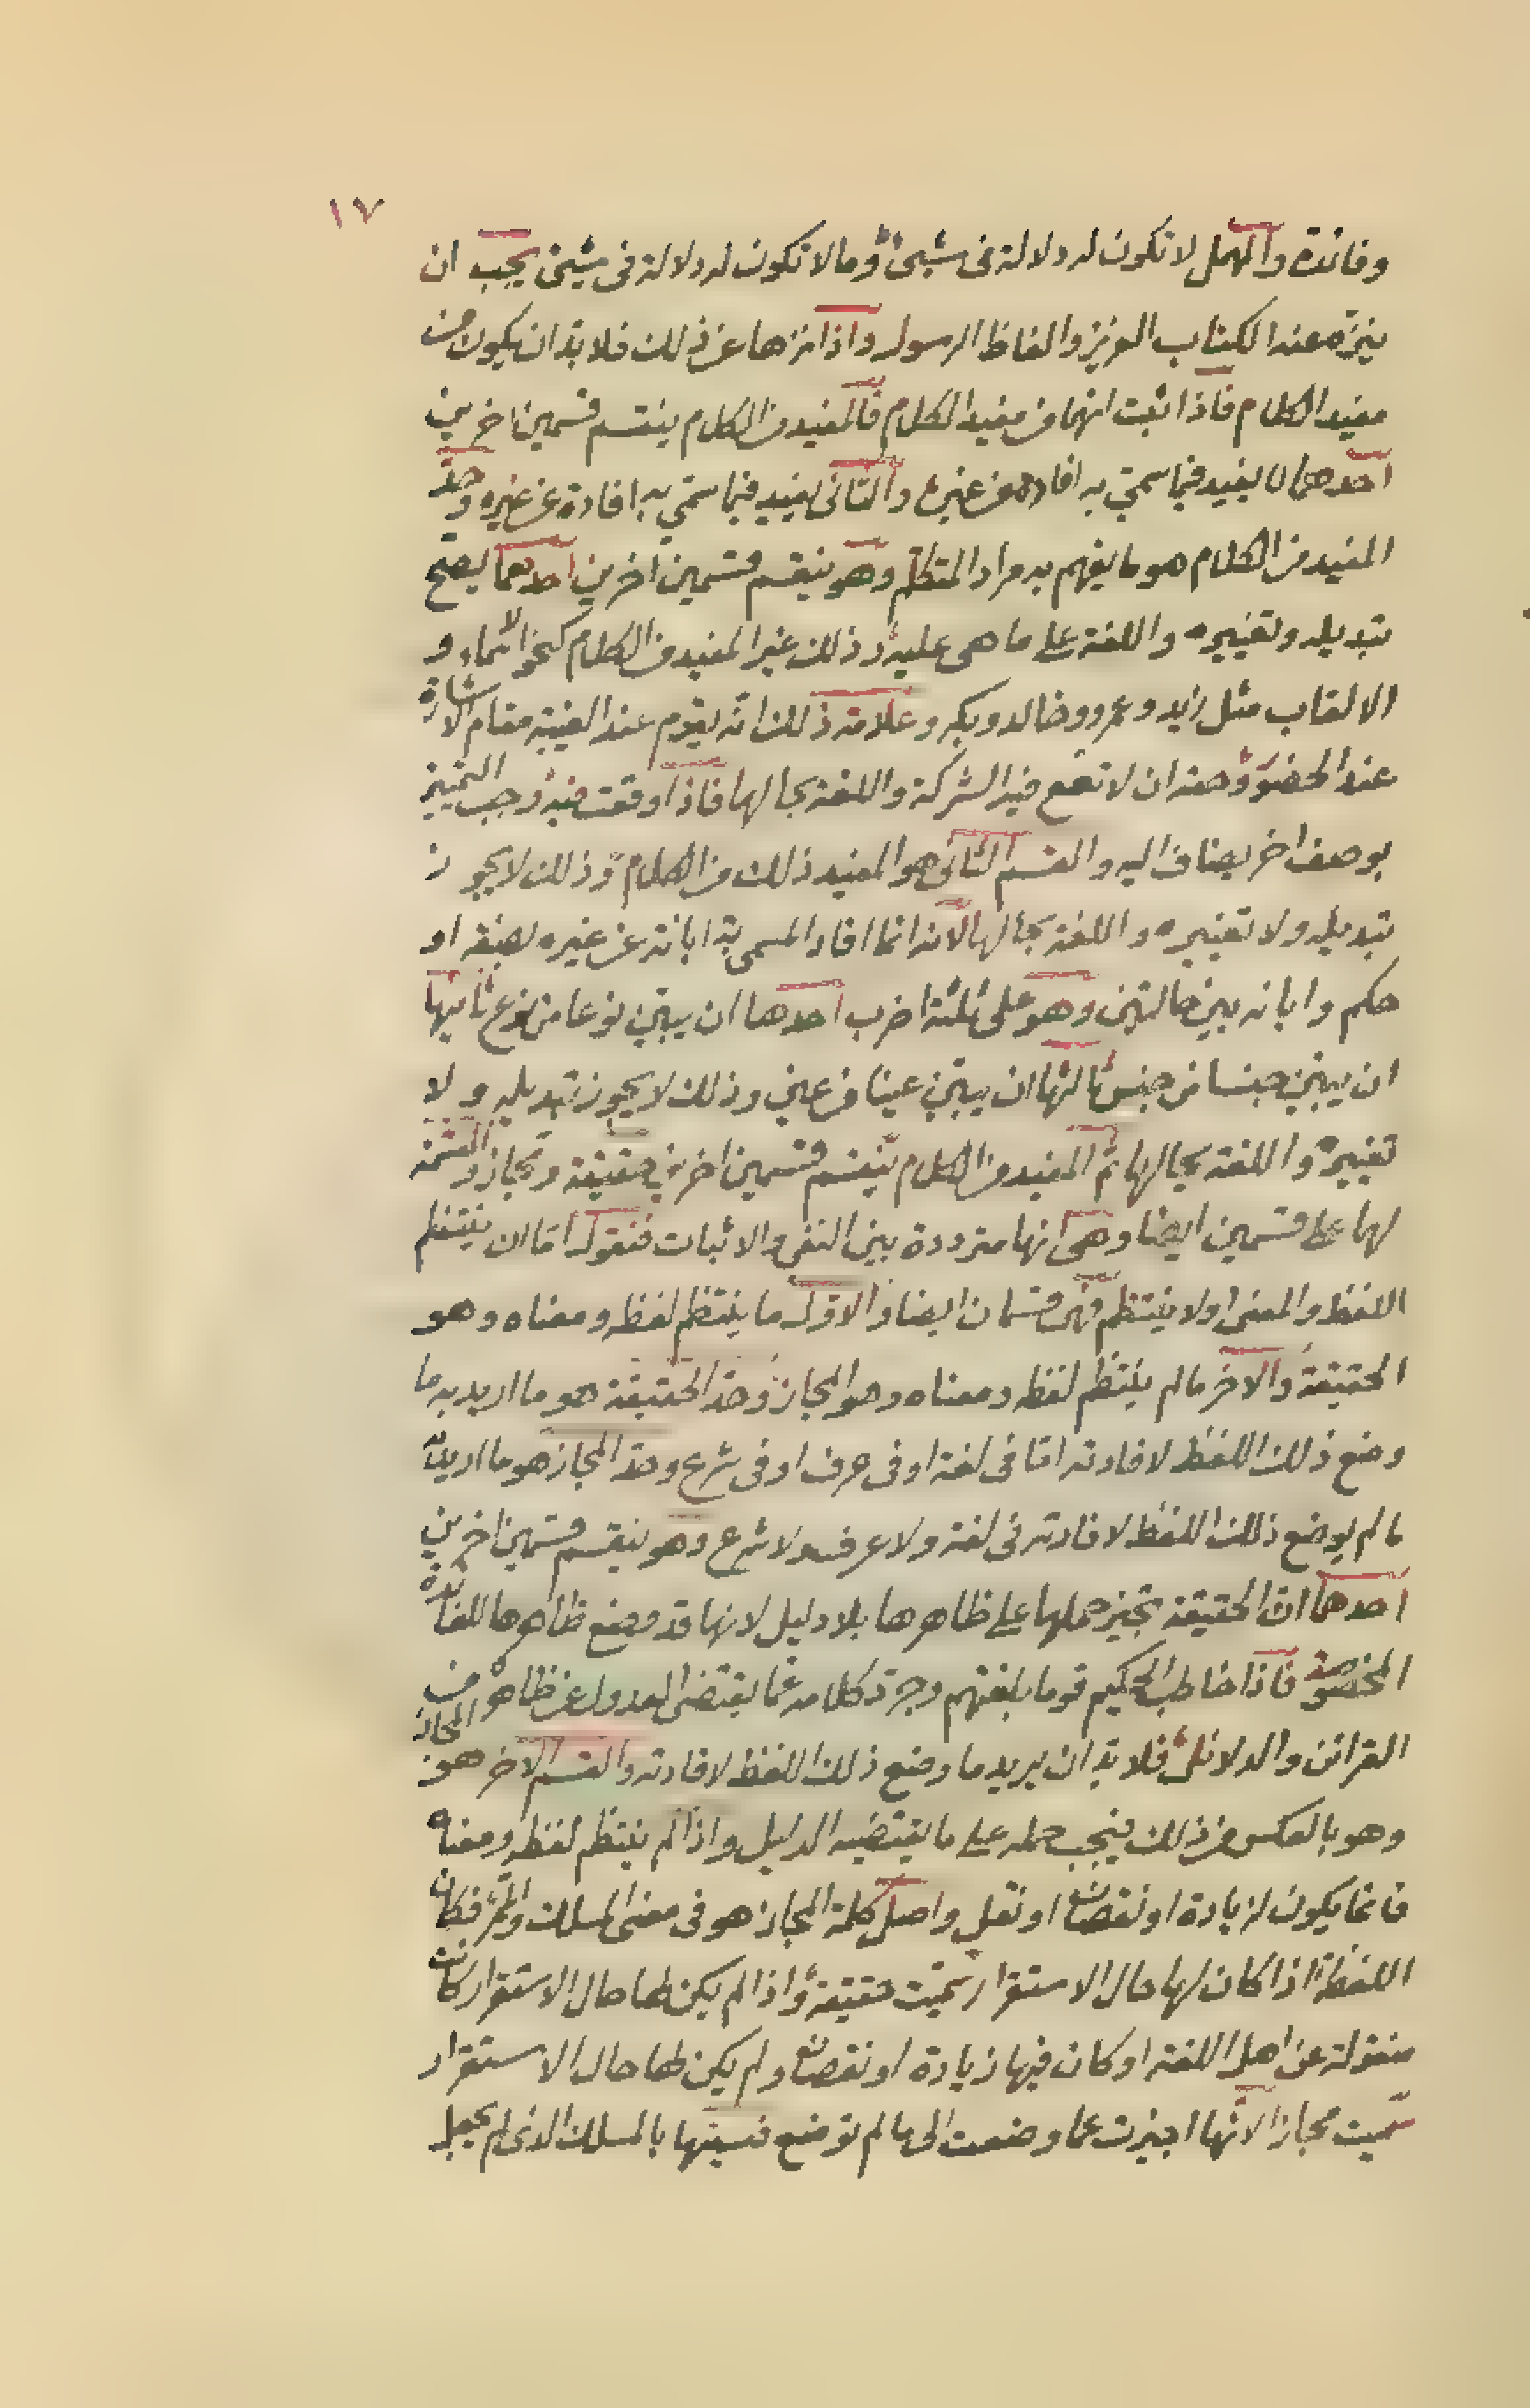 ١٧
وفائدة والمهمل لا تكون له دلالة فى شيئ وما لا تكون له دلالة فى شيئ يجب ان
ينزه عنه الكتاب العزيز والفاظ الرسول واذا نزها عن ذلك فلا بد ان يكون من
مفيد الكلام فاذا ثبت انهما من مفيد الكلام فالمفيد من الكلام ينقسم قسمين اخرين
احدهما لا يفيد فيما سمّي به افادة من غيره والثانى يفيد فيما سمّي به افادة عن غيره وحدّ
المفيد من الكلام هو ما يفهم به مراد المتكلم وهو ينقسم قسمين اخرين احدهما يصح
تبديله وتغييره واللغة على ما هى عليه وذلك غير المفيد من الكلام كنحو الاسماء و
الالقاب مثل زيد وعمرو وخالد وبكر وعلامة ذلك انّه يقوم عند الغيبة مقام الاشارة
عند الحضور وحقه ان لا تقع فيه الشركة واللغة بحالها فاذا وقعت فيه وجب التمييز
بوصف اخر يضاف اليه والقسم الثانى هو المفيد ذلك من الكلام وذلك لا يجوز
تبديله ولا تغييره واللغة بحالها لانه انما افاد المسمى به ابانة عن غيره لصفة او
حكم وابانه بين حالتين وهو على ثلثة اضرب احدها ان يبيّن نوعا من نوع ثانيها
ان يبيّن جنسا من جنس ثالثها ان يبيّن عينا من عين وذلك لا يجوز تبديله ولا
تغييره واللغة بحالها ثم المفيد من الكلام ينقسم قسمين اخرين حقيقة ومجاز والقسمة
لها على قسمين ايضا وهى انها مترددة بين النفى والاثبات فنقول امّا ان ينتظم
اللفظ والمعنى او لا ينتظم فهى قسمان ايضا والاوّل ما ينتظم لفظه ومعناه وهو
الحقيقة والاخر ما لم ينتظم لفظه ومعناه وهو المجاز وحدّ الحقيقة هو ما اريد به ما
وضع ذلك اللفظ لافادته امّا فى لغة او فى عرف او فى شرع وحدّ المجاز هو ما اريد به
ما لم يوضع ذلك اللفظ لافادته فى لغة ولا عرف ولا شرع وهو ينقسم قسمين اخرين
احدهما ان الحقيقة تجيز حملها على ظاهرها بلا دليل لانها قد وضع ظاهرها للفائدة
المخصوصة فاذا خاطب الحكيم قوما بلغتهم وجرّد كلامه عمّا يقتضى العدول عن ظاهره من
القرائن والدلائل فلا بدّ ان يريد ما وضع ذلك اللفظ لافادته والقسم الاخر هو المجاز
وهو بالعكس من ذلك فيجب حمله على ما يقتضيه الدليل واذا لم ينتظم لفظه ومعناه
فانما يكون لزيادة او نقصان او نقل واصل كلمة المجاز هو فى معنى المسلك والممر فكان
اللفظة اذا كان لها حال الاستقرار سمّيت حقيقة واذا لم يكن لها حال الاستقرار كانت
منقولة عن اهل اللغة او كان فيها زيادة او نقصان ولم يكن لها حال الاستقرار
سمّيت مجازا لانّها اجيزت عما وضعت الى ما لم توضع فسميتها بالمسلك الذى لم يجعل